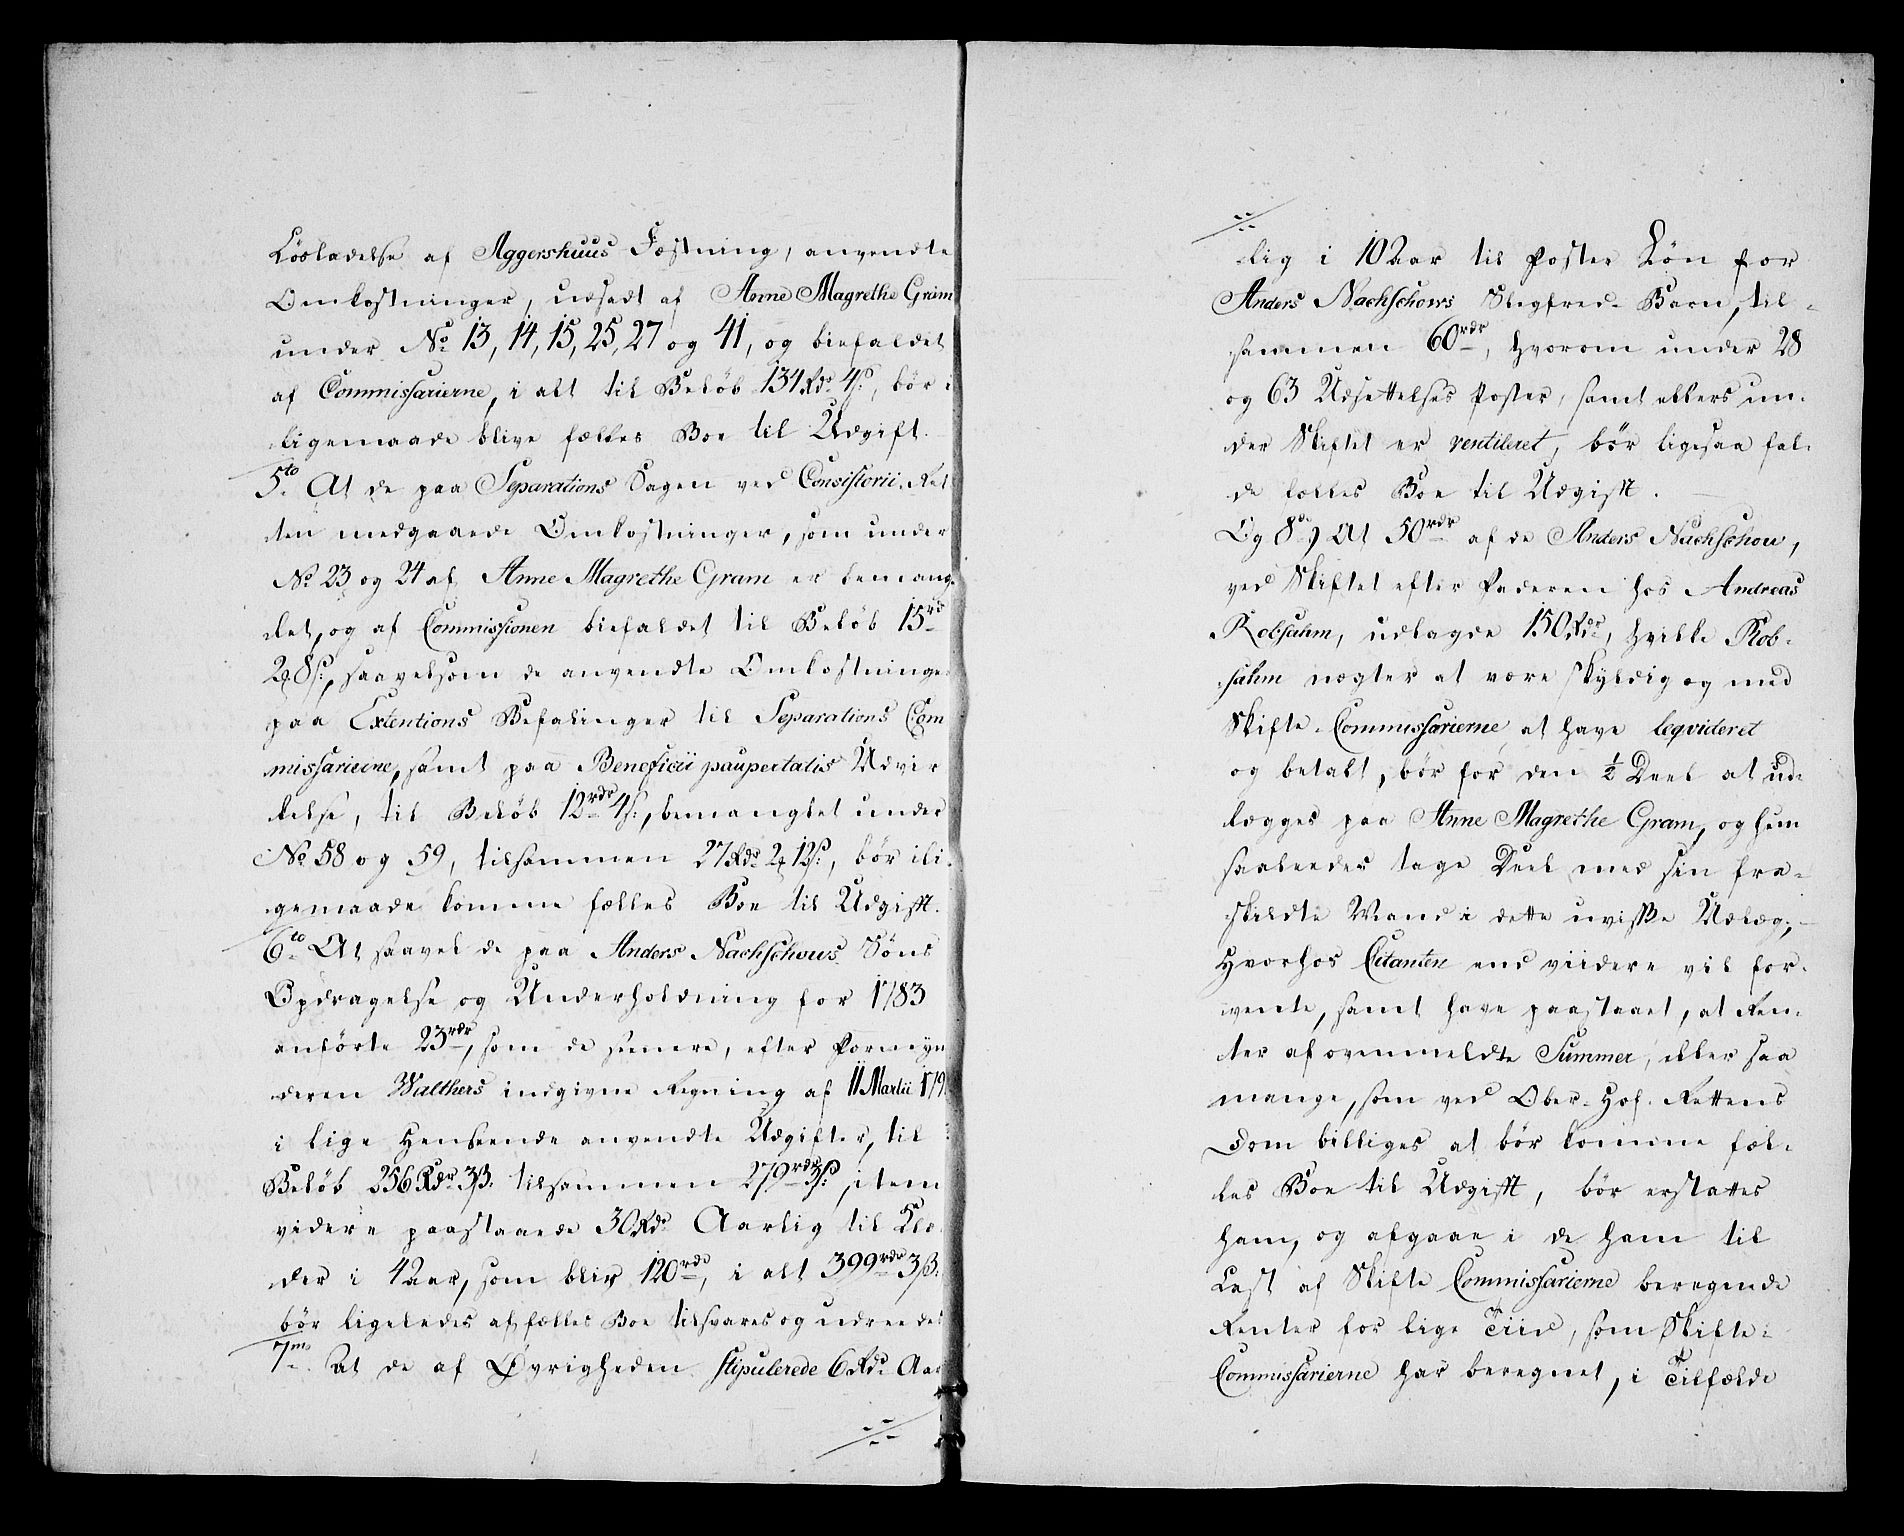 Lösladelse af Aggershuus Fæstning, anvendte
Omkostninger, udsadt af Anne Magrethe Gram
under No 13, 14, 15, 25, 27 og 41, og biefaldet
af Commissarierne, i alt til Beløb 134 Rdr 4 s, bör i
ligemaade blive fælles Boe til Udgift.
5to. At de paa Separations Sagen ved Consistorii-Ret
ten medgaaede Omkostninger, som under
No 23 og 24 af Anne Magrethe Gram er bemang-
let, og af Commissionen biefaldet til Beløb 15 rd
2 8 s, saavelsom de anvendte Omkostninge
paa Extentions Befalinger til Separations Com
missarierne, samt paa Beneficii paupertatis Udvir
kelse, til Beløb 12 rdr 4 s:, bemanglet under
No 58 og 59, tilsammen 27 Rdr 2 12 s, bör ili-
gemaade komme fælles Boe til Udgift.
6to At saavel de paa Anders Nachschous Söns
Opdragelse og Underholdning for 1783
anförte 23 rdr, som de senere, efter Formyn
deren Walthers indgivne Regning af 11 Martii 179
i lige Henseende anvendte Udgifter, til
Beløb 256 Rdr 3 s. tilsammen 279 rdr 3 s:, item
videre paastaaede 30 Rdr Aarlig til Klæ-
der i 4 Aar, som blir 120 rdr, i alt 399 rdr 3 s:
bör ligeledes af fælles Boe tilsvares og udreedes
7mo. At de af Øvrigheden stipulerede 6 Rdr Aar
lig i 10 Aar til Foster Lön for
Anders Nachschous Slegfred-Barn, til-
sammen 60 rdr, hvorom under 28
og 63 Udsettelses Poster, samt ellers un-
der Skiftet er ventileret, bör ligesaa fal-
de fælles Boe til Udgift.
Og 8de) At 50 rdr af de Anders Nachschou,
ved Skiftet efter Faderen hos Andreas
Robsahm, udlagde 150 Rdr, hvilke Rob-
sahm nægter at være skyldig og med
Skifte-Commissarierne at have leqvideret
og betalt, bör for den 1/2 Deel at ud-
lægges paa Anne Magrethe Gram, og hun
saaleedes tage Deel med sin fra-
skildte Mand i dette uvisse Udlæg;
Hvorhos Citanten end viidere vil for-
vente, samt have paastaaet, at Ren-
ter af ovenmeldte Summer, eller saa
mange, som ved Ober-Hof-Rettens
Dom billiges at bör komme fæl-
les Boe til Udgift, bör erstattes
ham, og afgaae i de ham til
Last af Skifte Commissarierne beregnede
Renter for lige Tiid, som Skifte-
Commissarierne har beregnet, i Tilfælde